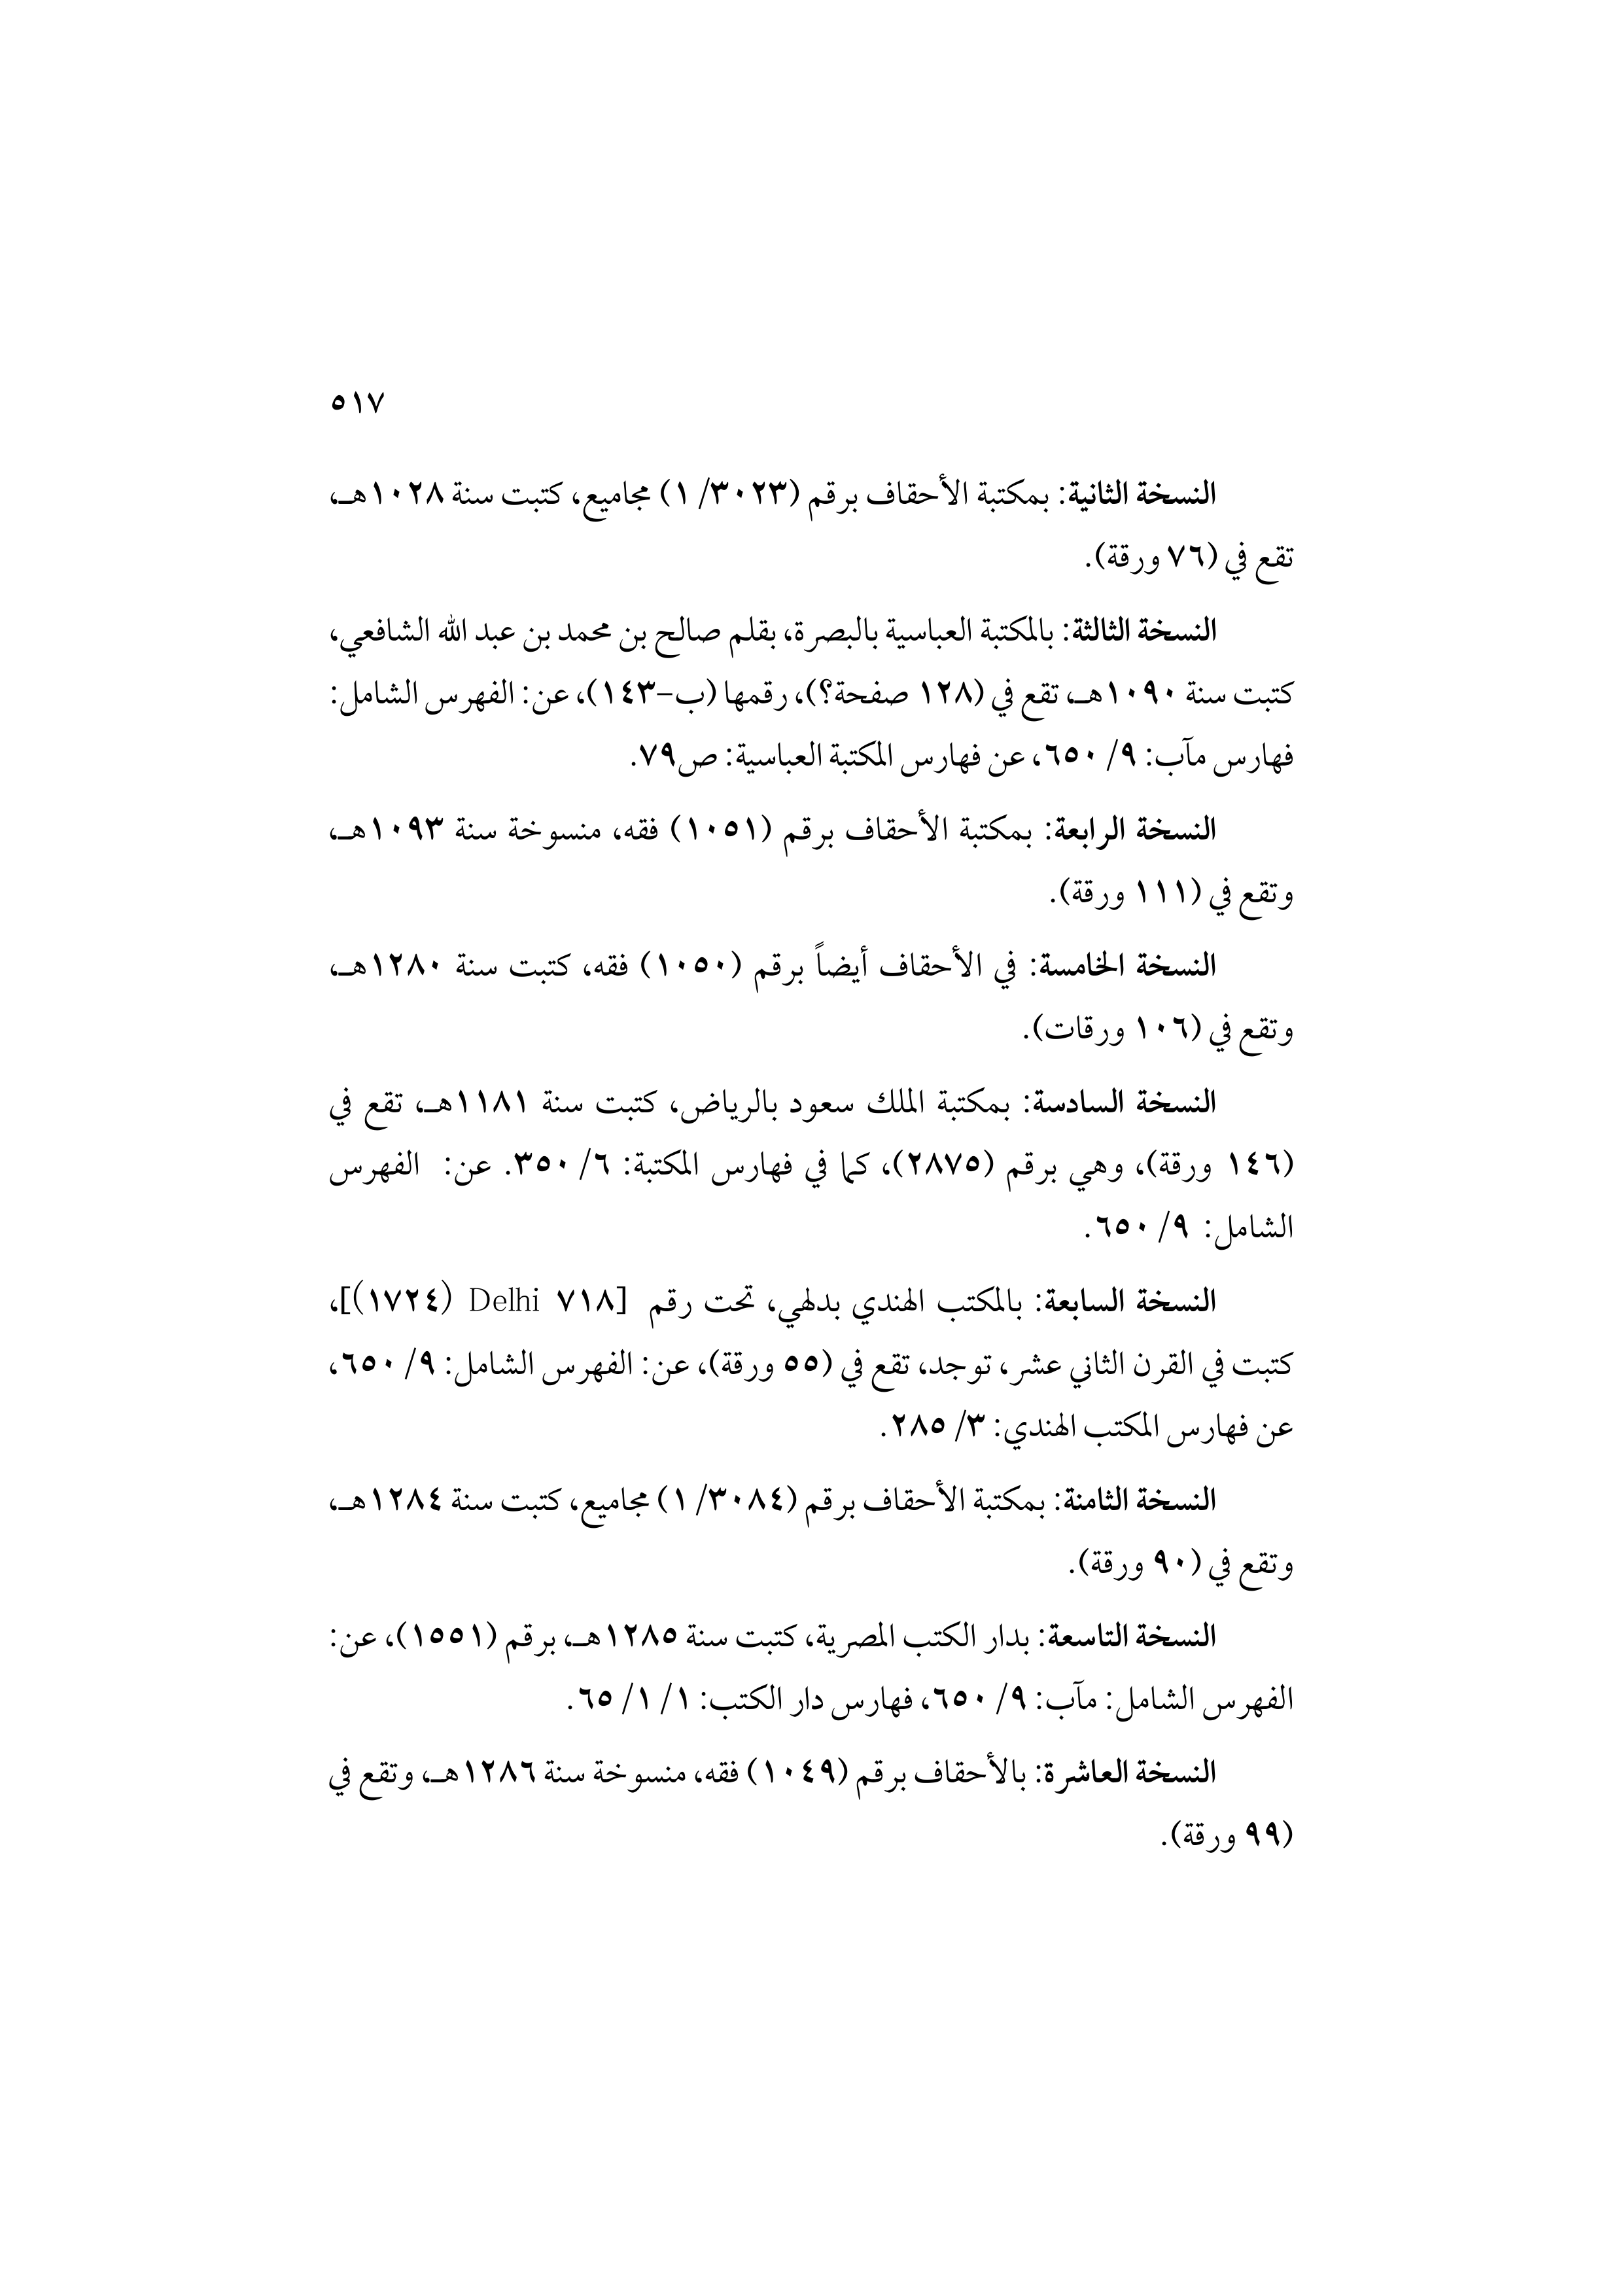 ٥١٧
النسخة الثانية: بمكتبة الأحقاف برقم (٣٠٢٣/ ١) مجاميع، كتبت سنة ١٠٢٨هـ،
تقع في (٧٦ ورقة).
النسخة الثالثة: بالمكتبة العباسية بالبصرة، بقلم صالح بن محمد بن عبد الله الشافعي،
كتبت سنة ١٠٩٠هـ، تقع في (١٢٨ صفحة؟)، رقمها (ب-١٤٣)، عن: الفهرس الشامل:
فهارس مآب: ٩/ ٦٥٠، عن فهارس المكتبة العباسية: ص٧٩.
النسخة الرابعة: بمكتبة الأحقاف برقم (١٠٥١) فقه، منسوخة سنة ١٠٩٣هـ،
وتقع في (١١١ ورقة).
النسخة الخامسة: في الأحقاف أيضاً برقم (١٠٥٠) فقه، كتبت سنة ١٢٨٠هـ،
وتقع في (١٠٦ ورقات).
النسخة السادسة: بمكتبة الملك سعود بالرياض، كتبت سنة ١١٨١هـ، تقع في
(١٤٦ ورقة)، وهي برقم (٢٨٧٥)، كما في فهارس المكتبة: ٦/ ٣٥٠. عن: الفهرس
الشامل: ٩/ ٦٥٠.
النسخة السابعة: بالمكتب الهندي بدلهي، تحت رقم [٧١٨ Delhi (١٧٢٤)]،
كتبت في القرن الثاني عشر، توجد، تقع في (٥٥ ورقة)، عن: الفهرس الشامل: ٩/ ٦٥٠،
عن فهارس المكتب الهندي: ٣/ ٢٨٥.
النسخة الثامنة: بمكتبة الأحقاف برقم (٣٠٨٤/ ١) مجاميع، كتبت سنة ١٢٨٤هـ،
وتقع في (٩٠ ورقة).
النسخة التاسعة: بدار الكتب المصرية، كتبت سنة ١٢٨٥هـ، برقم (١٥٥١)، عن:
الفهرس الشامل: مآب: ٩/ ٦٥٠، فهارس دار الكتب: ١/ ١/ ٦٥.
النسخة العاشرة: بالأحقاف برقم (١٠٤٩) فقه، منسوخة سنة ١٢٨٦هـ، وتقع في
(٩٩ ورقة).